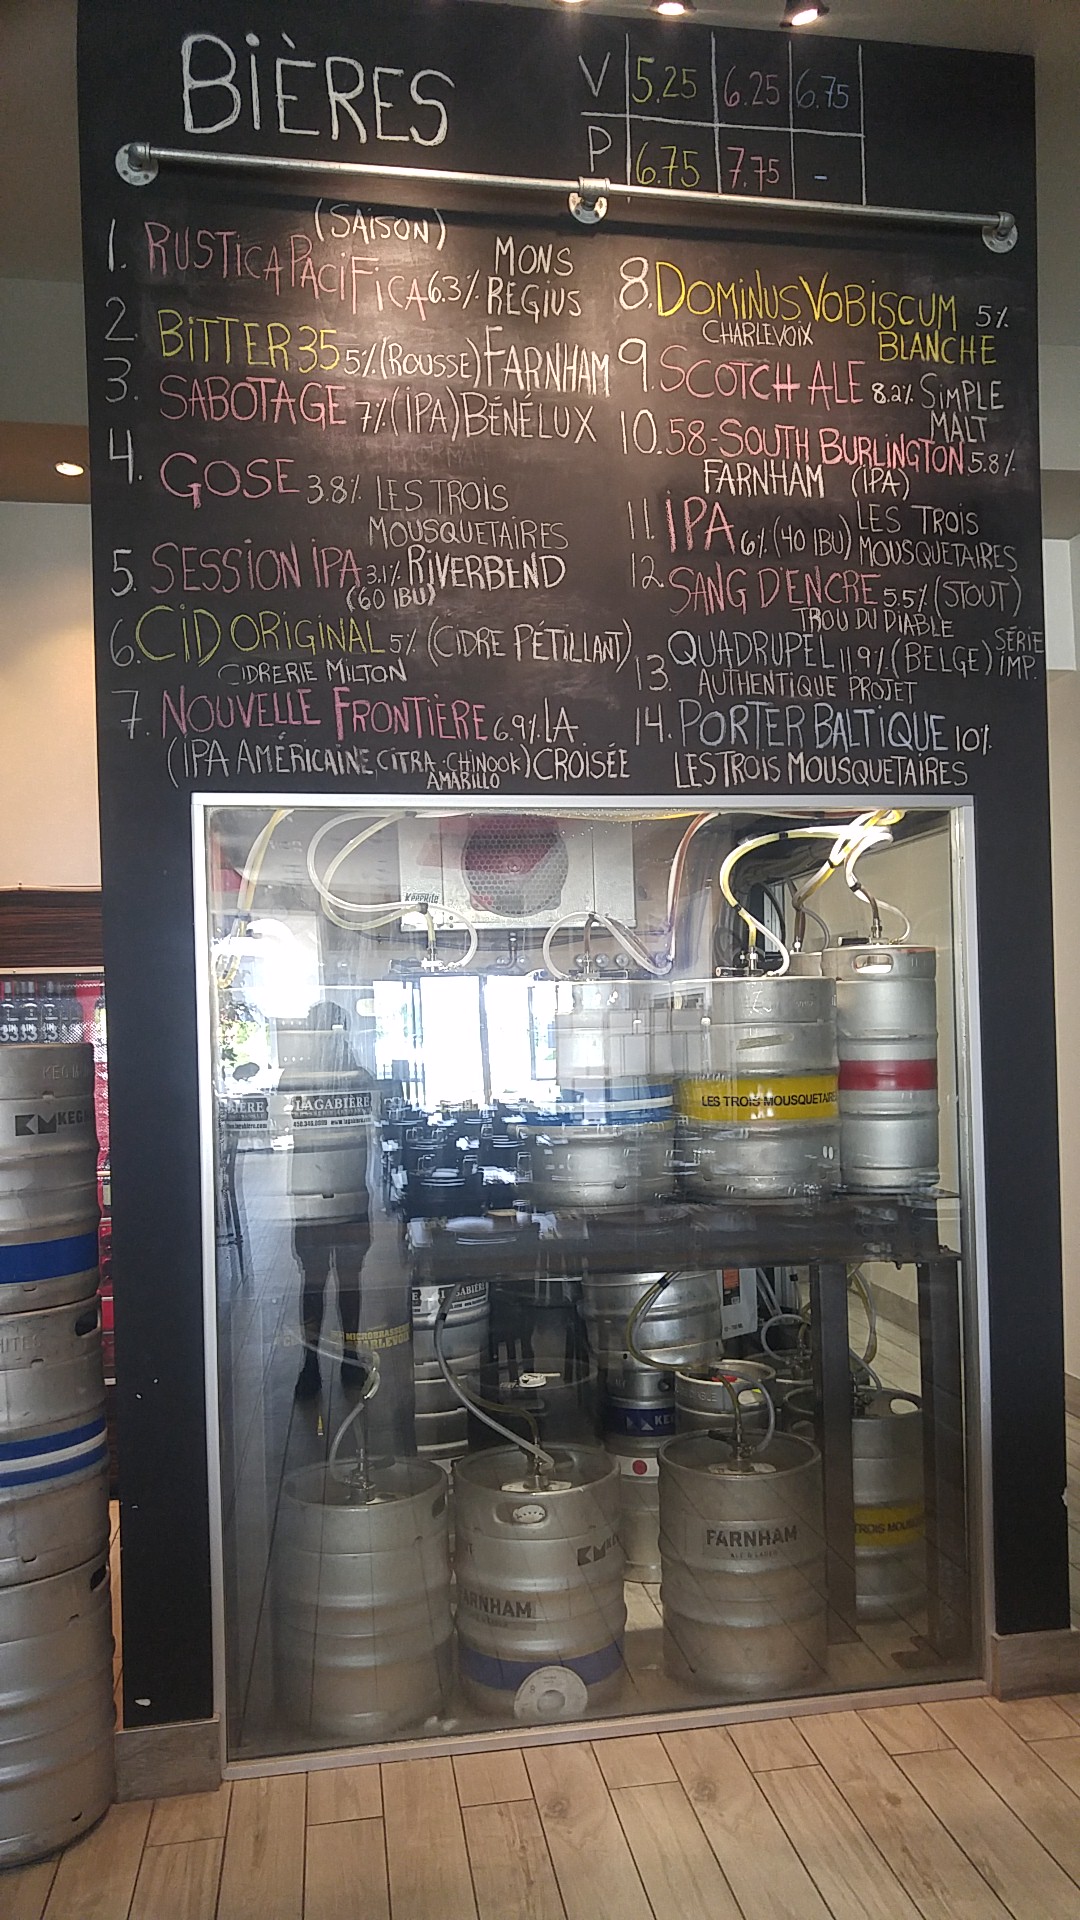 BIÈRES
V 5.25 6.25 6.75
P 6.75 7.75 -
1. RUSTICA PACIFICA 6.3%
(SAISON)
MONS
REGIUS
2. BITTER 35 5% (ROUSSE) FARNHAM
3. SABOTAGE 7% (IPA) BÉNÉLUX
4. GOSE 3.8% LES TROIS
MOUSQUETAIRES
5. SESSION IPA 3.1% RIVERBEND
(60 IBU)
6. CID ORIGINAL 5% (CIDRE PÉTILLANT)
CIDRERIE MILTON
7. NOUVELLE FRONTIÈRE 6.9% LA
(IPA AMÉRICAINE, CITRA-CHINOOK) CROISÉE
AMARILLO
8. DOMINUS VOBISCUM 5%
CHARLEVOIX BLANCHE
9. SCOTCH ALE 8.2% SIMPLE
MALT
10. 58-SOUTH BURLINGTON 5.8%
FARNHAM (IPA)
11. IPA 6% (40 IBU) LES TROIS
MOUSQUETAIRES
12. SANG D'ENCRE 5.5% (STOUT)
TROU DU DIABLE
13. QUADRUPEL 11.9% (BELGE) SÉRIE
IMP.
AUTHENTIQUE PROJET
14. PORTER BALTIQUE 10%
LES TROIS MOUSQUETAIRES
KeepRite
LAGABIÈRE
LES TROIS MOUSQUETAIRE
BIÈRE
MICROBRASSERIE
CHARLEVOIX
KEG
KEG
FARNHAM
ALE & LAGER
FARNHAM
TROIS MOUSQ